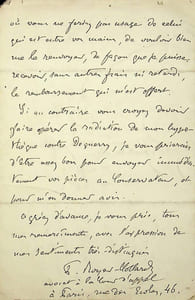 où vous ne feriez pas usage de celui
qui est entre vos mains, de vouloir bien
me le renvoyer, de façon que je puisse,
recevoir, sans autres frais ni retard,
le remboursement qui m'est offert.
Si au contraire vous croyez devoir
faire opérer la réduction de mon hypo-
thèque contre Doguerry, je vous prierais,
d'être assez bon pour envoyer immédia-
tement vos pièces au Conservateur, et
pour m'en donner avis.
agréez d'avance, je vous prie, tous
mes remerciements, avec l'expression de
mes sentiments très distingués
avocat à la Cour d'appel
à Paris, rue des Ecoles, 46.